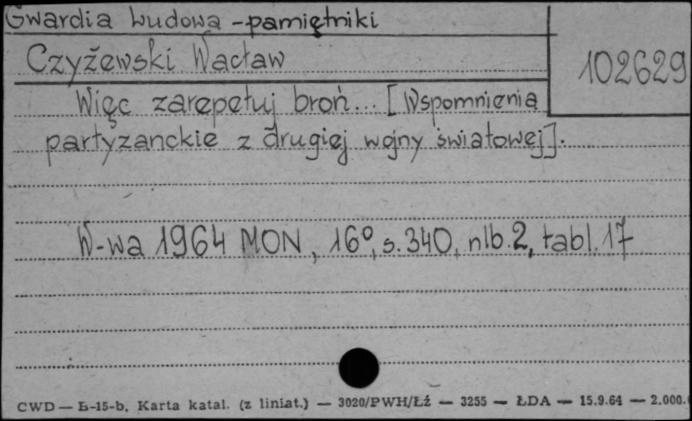 Gwardia Ludowa - pamiętniki
Czyżewski Wacław
102629
Więc zarepetuj broń... [Wspomnienia
partyzanckie z drugiej wojny światowej].
W-wa 1964 MON, 16°, s. 340, nlb. 2, tabl. 17
CWD — Ł-15-b. Karta katal. (z liniat.) — 3020/PWH/Łź — 3255 — ŁDA — 15.9.64 — 2.000.